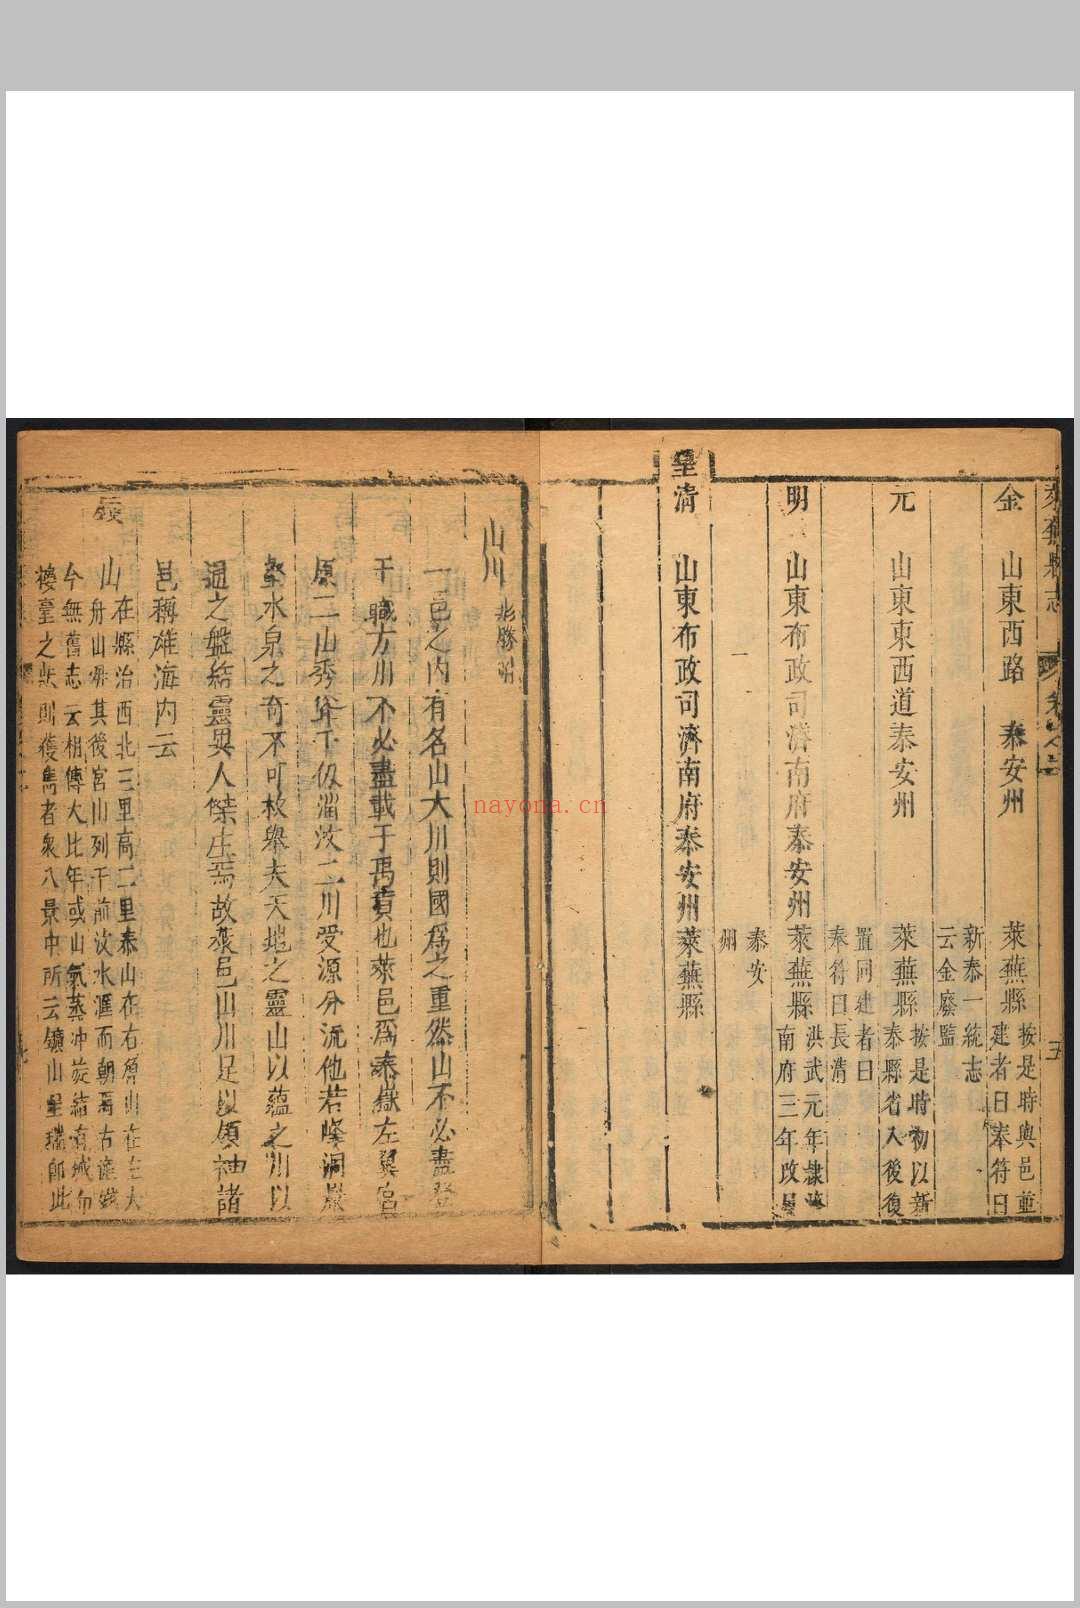 萊蕪縣志
金 山東西路 泰安州 萊蕪縣 按是時與邑並
建者曰奉符曰
新泰一統志
云金廢監
元 山東東西道泰安州 萊蕪縣 按是時初以新
泰縣省入後復
置同建者曰
奉符曰長清
明 山東布政司濟南府泰安州萊蕪縣 洪武元年隸濟
南府三年改屬
泰安
州
皇清 山東布政司濟南府泰安州萊蕪縣
山川 形勝附
一邑之內有名山大川則國爲之重然山不必盡登
于職方川不必盡載于禹貢也萊邑爲泰嶽左翼宮
原二山秀聳千仭淄汶二川受源分流他若峰洞巖
壑水泉之奇不可枚舉夫天地之靈山以蘊之川以
通之盤結靈異人傑生焉故萊邑山川足以領袖諸
邑稱雄海內云
山在縣治西北三里高二里泰山在右 山在左大
舟山 其後宮山列于前汶水滙而朝焉古產
今無舊志云相傳大比年或山氣蒸冲 結 城
樓臺之狀則獲雋者衆八景中所云鑛山呈瑞卽此
nayona.cn